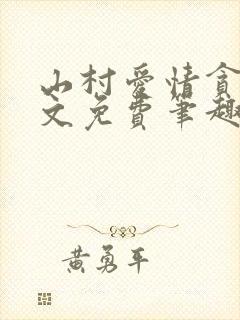 山村爱情贪
文免费笔趣
黄勇平